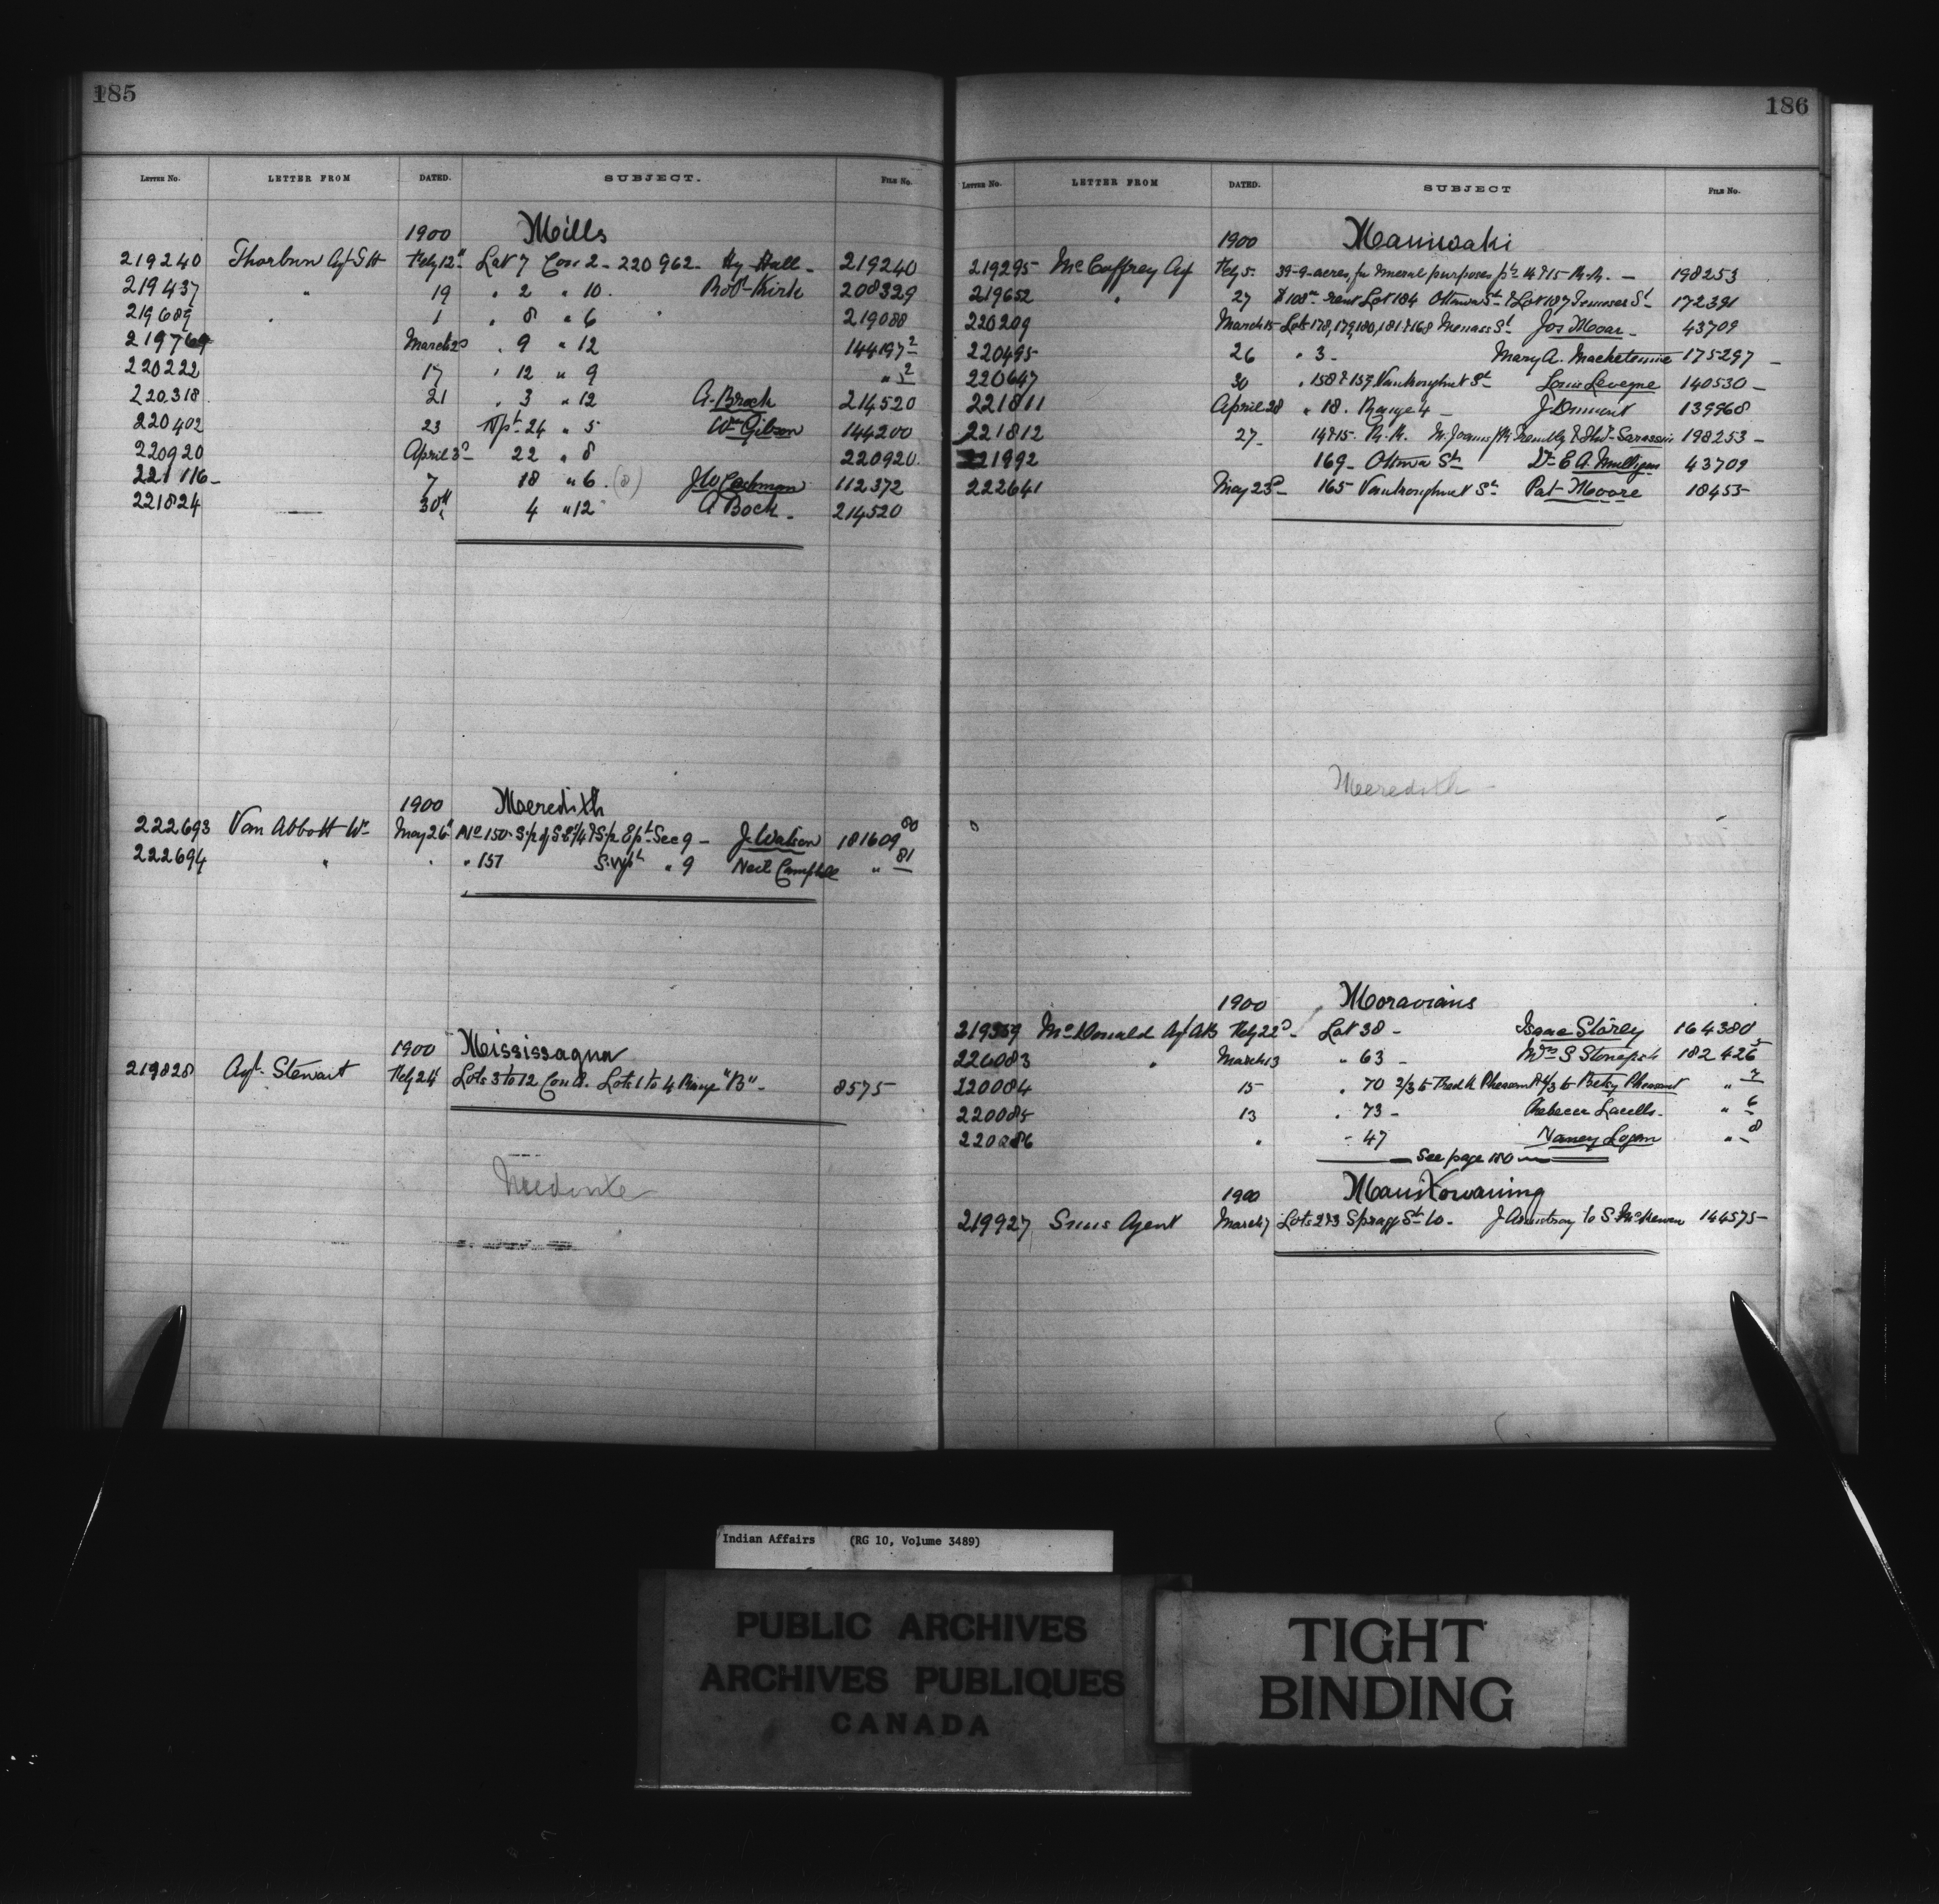 185
LETTER NO. LETTER FROM DATED. SUBJECT. FILE NO.
1900 Mills
219240 Thorburn Agt Feby 12" Lot 7 Con 2 - 220962 - Hy Hall - 219240
219437 " 19 " 2 " 10. Robt Kirk 208329
219689 " 1 " 8 " 6 " 219088
219769 March 2d " 9 " 12 144197 2
220222 17 " 12 " 9 " 2
220318 21 " 3 " 12 A. Brock 214520
220402 23 Npt 24 " 5 Wm Gibson 144200
220920 April 3d 22 " 8 220920
221116 - 7 18 " 6. (8) J W 112372
221824 30th 4 " 12 A Bock - 214520
1900 Meredith
222693 Van Abbott Wm May 26" No 150 - S.p of S.E 1/4 & S.p E pt Sec 9 - J. Watson 181609 80
222694 " " " 157 S.W pt " 9 Neil Campbell " 81
1900 Mississagua
219828 Agt. Stewart Feby 24" Lots 3 to 12 Con A. Lots 1 to 4 Range "B" - 8575
186
LETTER NO. LETTER FROM DATED. SUBJECT FILE NO.
1900 Maniwaki
219295 McCaffrey Agt Feby 5. 39-9 acres for mineral purposes pts 14 & 15 R.R. - 198253
219652 " 27 $108 rent Lot 184 Ottawa St & Lot 187 St 172391
220209 March 15 Lots 178, 179, 180, 181 & 168 St Jos Moar - 43709
220495 26 " 3 - Mary A. Machetonine 175297 -
220647 30 " 158 & 159 Vankoughnet St Louis Levegne 140530 -
221811 April 28 " 18. Range 4 - J. Dumont 139968
221812 27 - 14 & 15. R.R. Sarassin 198253 -
221992 169 - Ottawa St Dr E A. Mulligan 43709
222641 May 23d - 165 Vankoughnet St Pat Moore 18455
Meredith
1900 Moravians
219359 McDonald Agt AB Feby 22d - Lot 38 - Isaac Storey 164380
220083 " March 13 " 63 - Wm S Stonefish 182426 5
220084 15 " 70 2/3 to Fredk Pheasant & 1/3 to Betsy Pheasant " 7
220085 13 " 73 - Rebecca Lacells - " 6
220086 " - 47 Nancy Logan " 8
See page 180
1900 Manitowaning
219927 Sims Agent March 7 Lots 2 & 3 Spragge St W. - J Armstrong to S McKewen 144575 -
Indian Affairs (RG 10, Volume 3489)
PUBLIC ARCHIVES
ARCHIVES PUBLIQUES
CANADA
TIGHT
BINDING